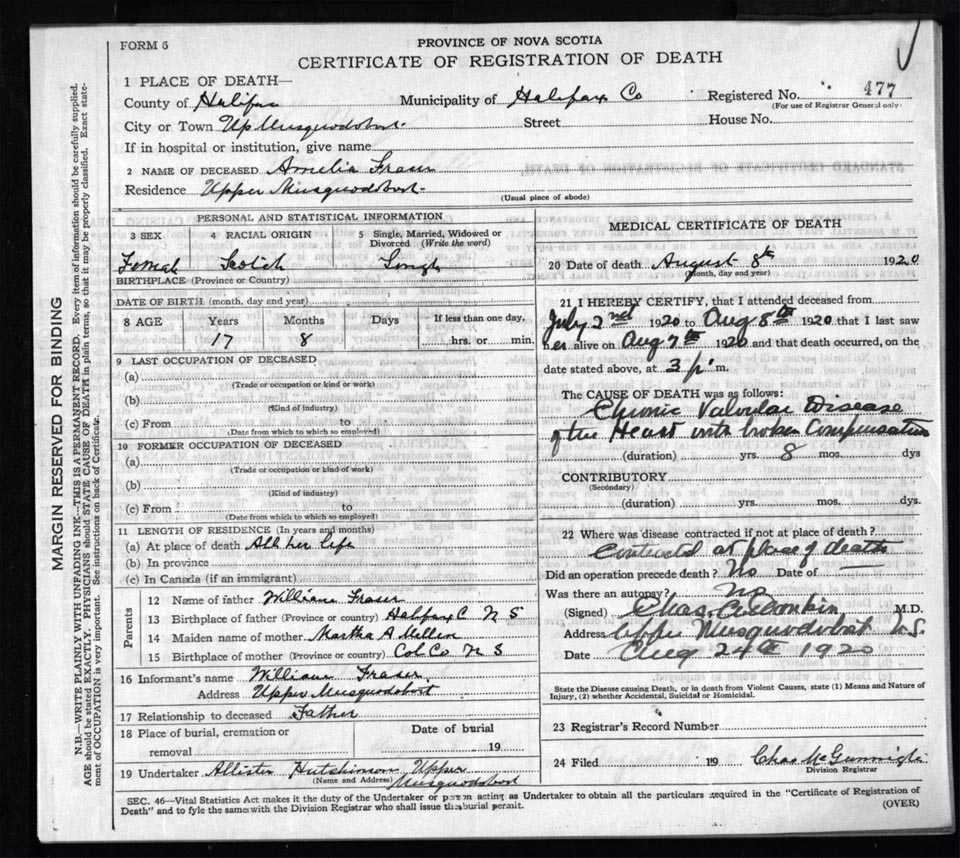 FORM 6
PROVINCE OF NOVA SCOTIA
CERTIFICATE OF REGISTRATION OF DEATH
1 PLACE OF DEATH—
County of Halifax Municipality of Halifax Co Registered No. 477
(For use of Registrar General only)
City or Town Up Musquodoboit Street House No.
If in hospital or institution, give name
2 NAME OF DECEASED Amelia Fraser
Residence Upper Musquodoboit
(Usual place of abode)
PERSONAL AND STATISTICAL INFORMATION
3 SEX 4 RACIAL ORIGIN 5 Single, Married, Widowed or Divorced (Write the word)
Female Scotch Single
BIRTHPLACE (Province or Country)
DATE OF BIRTH (month, day and year)
8 AGE Years Months Days If less than one day,
17 8 hrs. or min.
9 LAST OCCUPATION OF DECEASED
(a)
(Trade or occupation or kind or work)
(b)
(Kind of industry)
(c) From to
(Date from which to which so employed)
10 FORMER OCCUPATION OF DECEASED
(a)
(Trade or occupation or kind or work)
(b)
(Kind of industry)
(c) From to
(Date from which to which so employed)
11 LENGTH OF RESIDENCE (In years and months)
(a) At place of death All her life
(b) In province
(c) In Canada (if an immigrant)
Parents
12 Name of father William Fraser
13 Birthplace of father (Province or country) Halifax C N S
14 Maiden name of mother Martha A
15 Birthplace of mother (Province or country) Col Co N S
16 Informant's name William Fraser
Address Upper Musquodoboit
17 Relationship to deceased Father
18 Place of burial, cremation or removal Date of burial
19
19 Undertaker Allister Hutchinson Upper
(Name and Address) Musquodoboit
MEDICAL CERTIFICATE OF DEATH
20 Date of death August 8th 1920
(Month, day and year)
21 I HEREBY CERTIFY, that I attended deceased from
July 2nd 1920 to Aug 8th 1920 that I last saw
her alive on Aug 7th 1920 and that death occurred, on the
date stated above, at 3 p. m.
The CAUSE OF DEATH was as follows:
Chronic Valvular Disease
of the Heart with broken Compensation
(duration) yrs. 8 mos. dys
CONTRIBUTORY
(Secondary)
(duration) yrs. mos. dys.
22 Where was disease contracted if not at place of death?
Contracted at place of death
Did an operation precede death? No Date of —
Was there an autopsy? No
(Signed) Chas. M.D.
Address Upper Musquodoboit N.S.
Date Aug 24th 1920
State the Disease causing Death, or in death from Violent Causes, state (1) Means and Nature of
Injury, (2) whether Accidental, Suicidal or Homicidal.
23 Registrar's Record Number
24 Filed 19 Chas
Division Registrar
SEC. 46—Vital Statistics Act makes it the duty of the Undertaker or person acting as Undertaker to obtain all the particulars required in the "Certificate of Registration of
Death" and to fyle the same with the Division Registrar who shall issue the burial permit. (OVER)
MARGIN RESERVED FOR BINDING
N.B.—WRITE PLAINLY WITH UNFADING INK—THIS IS A PERMANENT RECORD. Every item of information should be carefully supplied.
AGE should be stated EXACTLY. PHYSICIANS should STATE CAUSE OF DEATH in plain terms, so that it may be properly classified. Exact statement of OCCUPATION is very important. See instructions on back of Certificate.